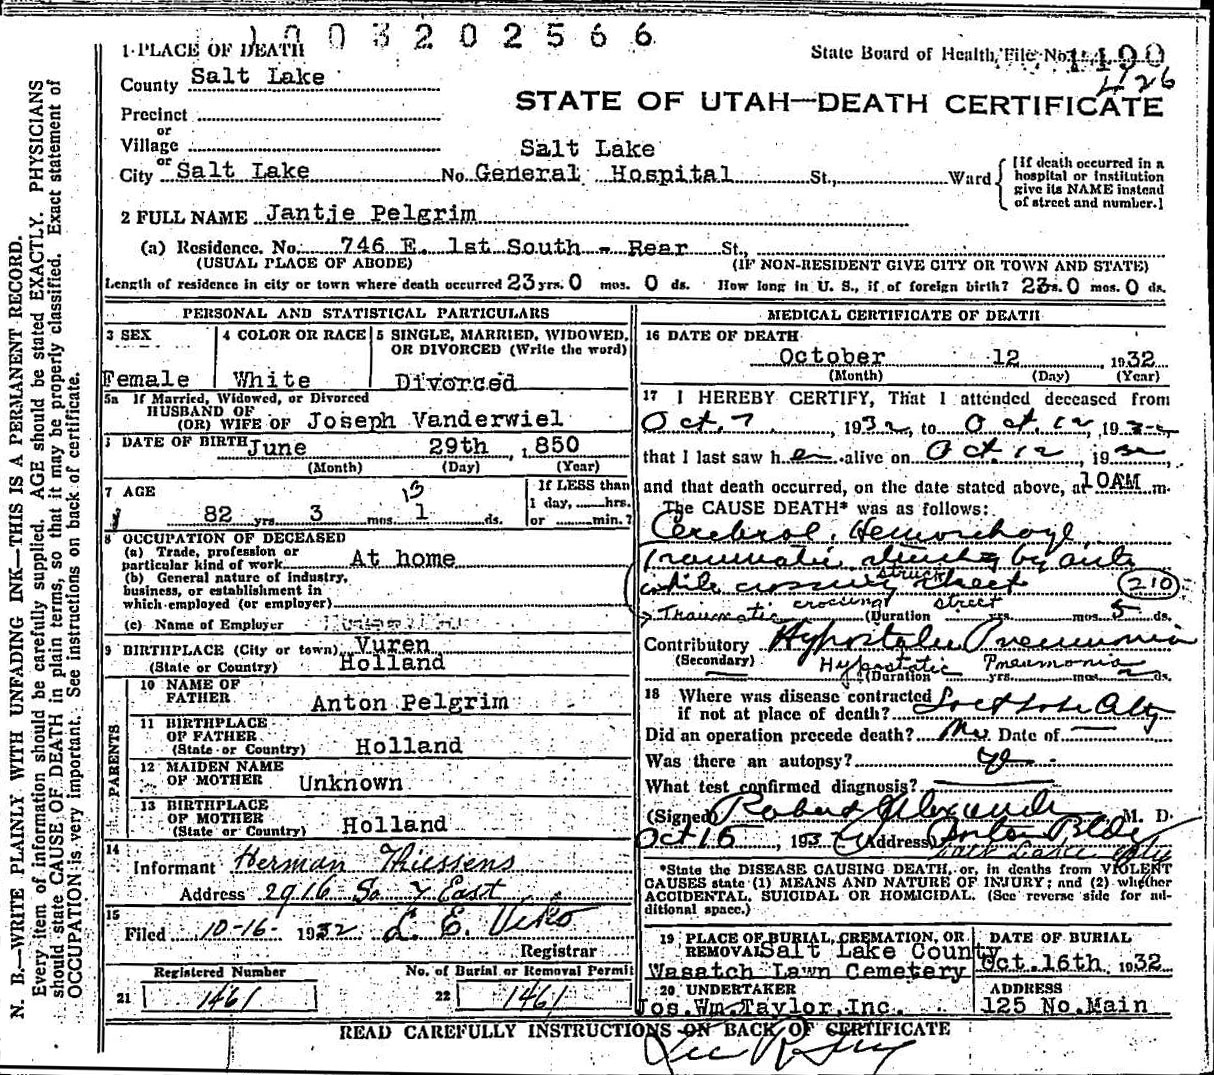 1003202566
1 PLACE OF DEATH
State Board of Health, File No. 1190
426
County Salt Lake
STATE OF UTAH—DEATH CERTIFICATE
Precinct
or
Village
or
City Salt Lake No. Salt Lake General Hospital St., Ward
[If death occurred in a hospital or institution give its NAME instead of street and number.]
2 FULL NAME Jantje Pelgrim
(a) Residence. No. 746 E. 1st South - Rear St.,
(USUAL PLACE OF ABODE) (IF NON-RESIDENT GIVE CITY OR TOWN AND STATE)
Length of residence in city or town where death occurred 23 yrs. 0 mos. 0 ds. How long in U. S., if of foreign birth? 23 rs. 0 mos. 0 ds.
N. B.—WRITE PLAINLY WITH UNFADING INK—THIS IS A PERMANENT RECORD.
Every item of information should be carefully supplied. AGE should be stated EXACTLY. PHYSICIANS
should state CAUSE OF DEATH in plain terms, so that it may be properly classified. Exact statement of
OCCUPATION is very important. See instructions on back of certificate.
PERSONAL AND STATISTICAL PARTICULARS
3 SEX
Female
4 COLOR OR RACE
White
5 SINGLE, MARRIED, WIDOWED, OR DIVORCED (Write the word)
Divorced
5a If Married, Widowed, or Divorced
HUSBAND OF
(OR) WIFE OF Joseph Vanderwiel
DATE OF BIRTH June 29th, 1850
(Month) (Day) (Year)
7 AGE
13
82 yrs. 3 mos. 1 ds.
If LESS than
1 day, hrs.
or min.?
8 OCCUPATION OF DECEASED
(a) Trade, profession or
particular kind of work At home
(b) General nature of industry,
business, or establishment in
which employed (or employer)
(c) Name of Employer
9 BIRTHPLACE (City or town) Vuren
(State or Country) Holland
PARENTS
10 NAME OF
FATHER Anton Pelgrim
11 BIRTHPLACE
OF FATHER
(State or Country) Holland
12 MAIDEN NAME
OF MOTHER Unknown
13 BIRTHPLACE
OF MOTHER
(State or Country) Holland
14
Informant Herman Thiessens
Address 2916 So 7 East
15
Filed 10-16- 1932 L. E. Viko
Registrar
Registered Number
21 1461
No. of Burial or Removal Permit
22 1461
MEDICAL CERTIFICATE OF DEATH
16 DATE OF DEATH
October 12 1932
(Month) (Day) (Year)
17 I HEREBY CERTIFY, That I attended deceased from
Oct. 7, 1932, to Oct. 12, 1932,
that I last saw her alive on Oct. 12, 1932,
and that death occurred, on the date stated above, at 10AM m.
The CAUSE DEATH* was as follows:
Cerebral Hemorrhage
Traumatic struck by auto
while crossing street 210
struck
crossing street
? Traumatic (Duration yrs. mos. 5 ds.
Contributory Hypostatic Pneumonia
(Secondary) Hypostatic Pneumonia
(Duration yrs. mos. 2 ds.
18 Where was disease contracted
if not at place of death? Salt Lake City
Did an operation precede death? No Date of
Was there an autopsy?
What test confirmed diagnosis?
(Signed) Robert Alexander M. D.
Oct 15, 1932 (Address) Bldg
Salt Lake City
*State the DISEASE CAUSING DEATH, or, in deaths from VIOLENT
CAUSES state (1) MEANS AND NATURE OF INJURY; and (2) whether
ACCIDENTAL, SUICIDAL OR HOMICIDAL. (See reverse side for additional space.)
19 PLACE OF BURIAL, CREMATION, OR
REMOVAL Salt Lake County
Wasatch Lawn Cemetery
DATE OF BURIAL
Oct.16th 1932
20 UNDERTAKER
Jos.Wm.Taylor,Inc.
ADDRESS
125 No.Main
READ CAREFULLY INSTRUCTIONS ON BACK OF CERTIFICATE